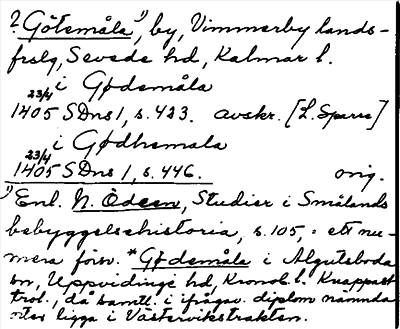 ? Götemåla 1), by, Vimmerby lands-
frslg, Sevede hd, Kalmar l.
i Gødemåla
23/4
1405 SDns 1, s. 423. avskr. [L. Sparre]
i Gødhemala
23/4
1405 SDns 1, s. 446. orig.
1) Enl. N. Ödeen, Studier i Smålands
bebyggelsehistoria, s. 105, = ett nu-
mera försv. *Gødemåla i Algutsboda
sn, Uppvidinge hd, Kronob. l. Knappast
trol., då samtl. i ifrågav. diplom nämnda
orter ligga i Västervikstrakten.